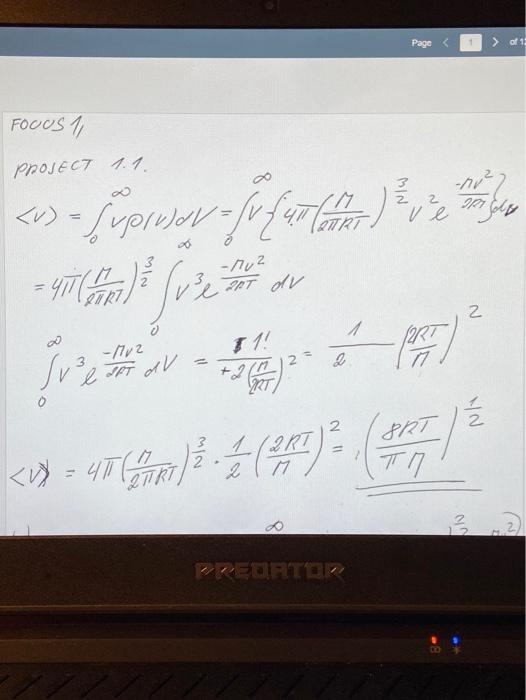 Page < 1 > of 1
FOCUS 1,
PROJECT 1.1.
<v> = ∫₀^∞ vρ(v)dv = ∫₀^∞ v{4π(M/2πRT)^(3/2) v² e^(-Mv²/2RT)}dv
= 4π(M/2πRT)^(3/2) ∫₀^∞ v³ e^(-Mv²/2RT) dv
∫₀^∞ v³ e^(-Mv²/2RT) dv = 1!/(+2(M/2RT)²) = 1/2 (2RT/M)²
<v> = 4π(M/2πRT)^(3/2) · 1/2 (2RT/M)² = (8RT/πM)^(1/2)
∞
PREDATOR